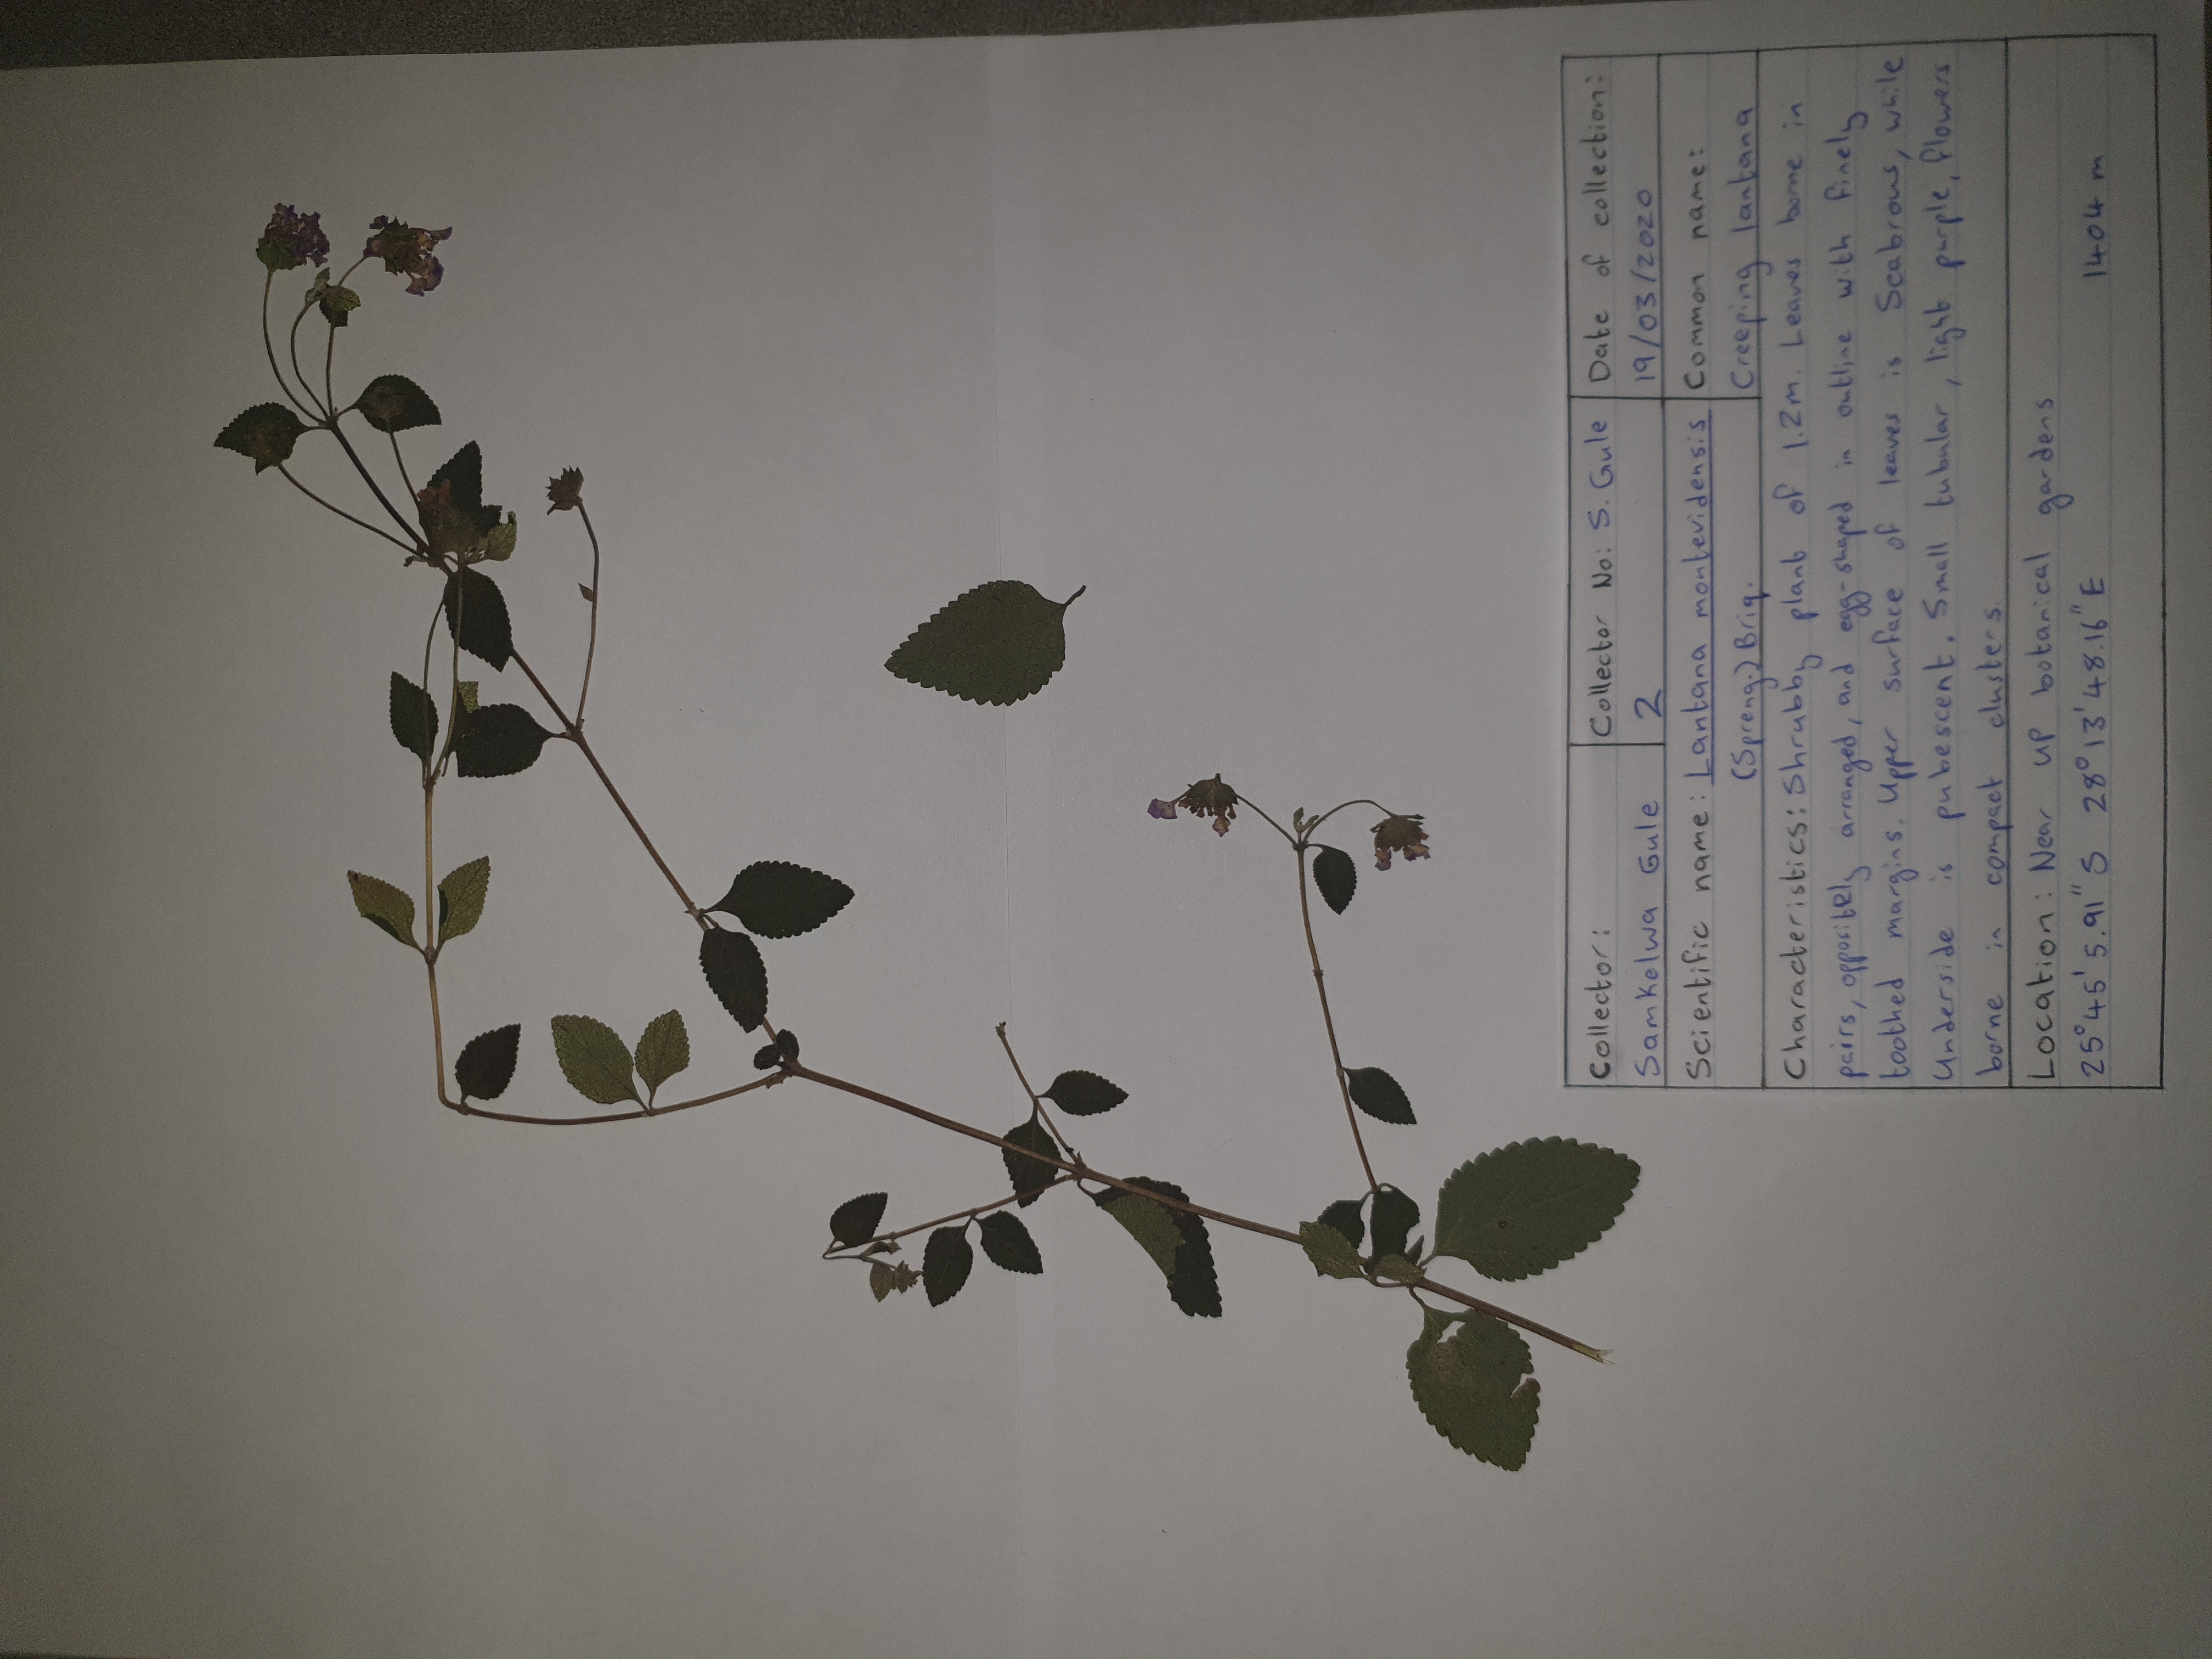 Collector: Collector No: S. Gule Date of collection:
Samkelwa Gule 2 19/03/2020
Scientific name: Lantana montevidensis Common name:
(Spreng.) Briq. Creeping lantana
Characteristics: Shrubby plant of 1.2m. Leaves borne in
pairs, oppositely arranged, and egg-shaped in outline with finely
toothed margins. Upper surface of leaves is Scabrous, while
Underside is pubescent. Small tubular, light purple, flowers
borne in compact clusters.
Location: Near UP botanical gardens
25°45'5.91"S 28°13'48.16"E 1404 m